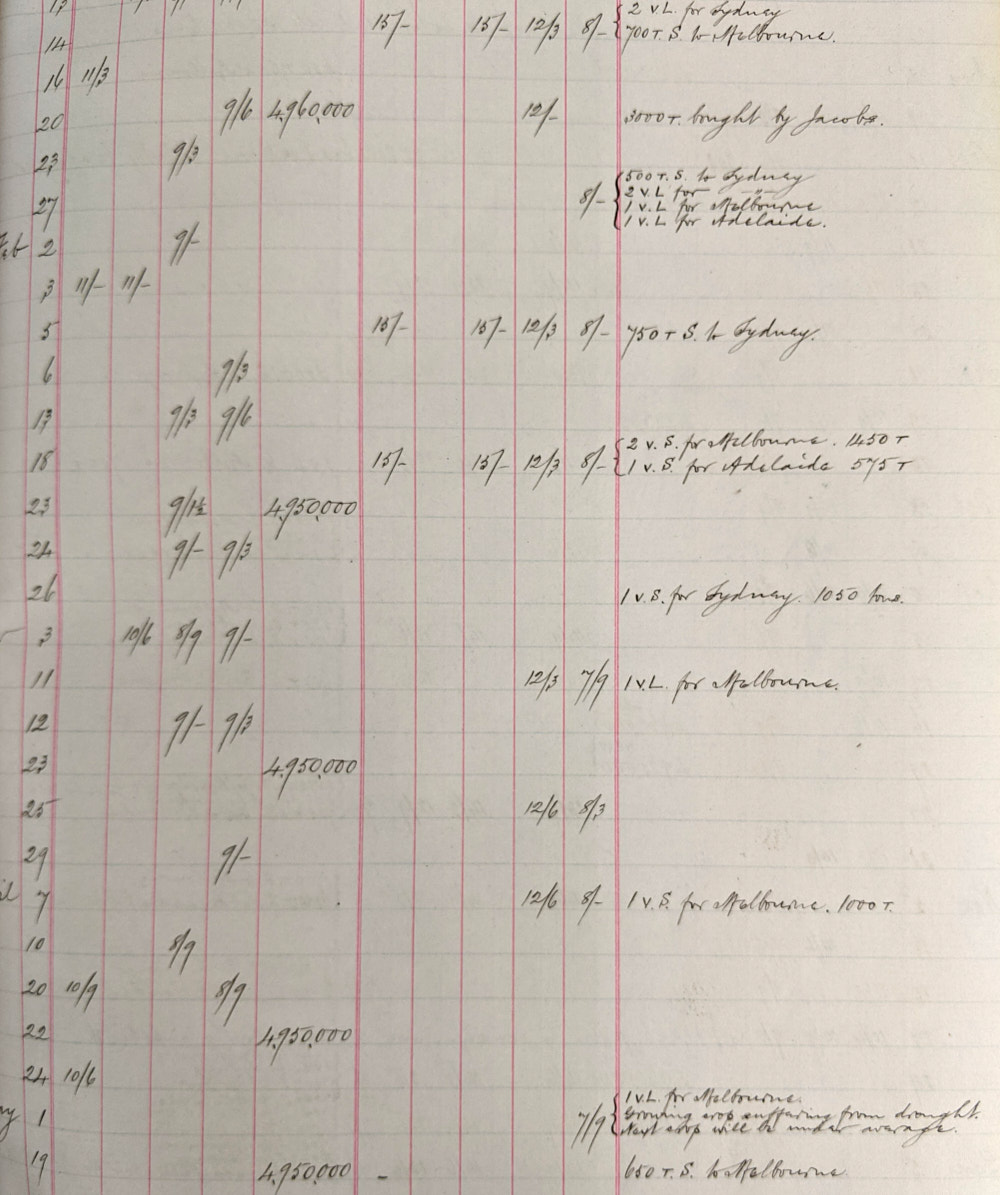 15/- 15/- 12/3 8/- { 2 v.L. for Sydney
14 700 T. S. to Melbourne.
16 11/3
20 9/6 4,960,000 12/- 3000 T. bought by Jacobs.
23 9/3
500 T. S. to Sydney
27 8/- { 2 v.L for -"-
1 v.L for Melbourne
1 v.L for Adelaide.
Feb 2 9/-
3 11/- 11/-
5 15/- 15/- 12/3 8/- 750 T S. to Sydney.
6 9/3
13 9/3 9/6
2 v. S. for Melbourne. 1450 T
18 15/- 15/- 12/3 8/- { 1 v. S. for Adelaide 575 T
23 9/1½ 4,950,000
24 9/- 9/3
26 1 v.S. for Sydney. 1050 tons.
3 10/6 8/9 9/-
11 12/3 7/9 1 v.L. for Melbourne.
12 9/- 9/3
23 4,950,000
25 12/6 8/3
29 9/-
7 12/6 8/- 1 v S. for Melbourne. 1000 T.
10 8/9
20 10/9 8/9
22 4,950,000
24 10/6
1 v.L. for Melbourne.
1 7/9 { Growing crop suffering from drought.
Next crop will be under average.
19 4,950,000 - 650 T. S. to Melbourne